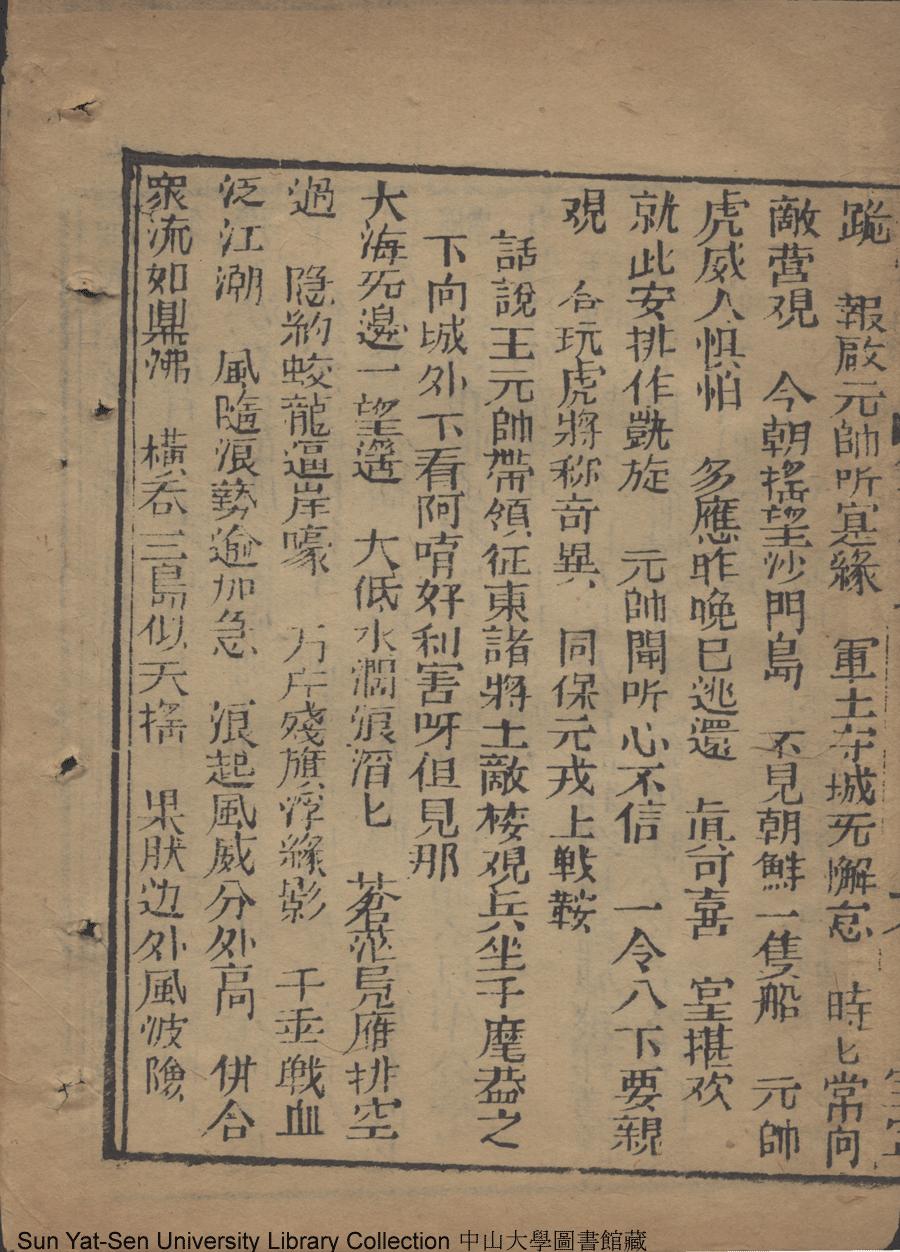 跪　報啟元帥听寔緣　軍士守城旡懈怠　時匕常向
敵营观　今朝摇望沙門島　不見朝鮮一隻船　元帥
虎威人惧怕　多應昨晚已逃還　眞可喜　室堪欢
就此安排作凱旋　元帥聞听心不信　一令八下要親
观　合玩虎將称奇異　同保元戎上戰鞍
話說王元帥帶領征東諸將士敵楼观兵坐于麾葢之
下向城外下看阿唷好利害呀但見那
大海旡邊一望遥　大低水濶浪滔匕　蒼茫見雁排空
過　隐約蛟龍逼岸嚎　万片殘旗浮綠影　千垂戰血
泛江潮　風隨浪勢逾加急　浪起風威分外高　併合
眾流如鼎沸　橫吞三島似天摇　果肰边外風波險
Sun Yat-Sen University Library Collection 中山大學圖書館藏